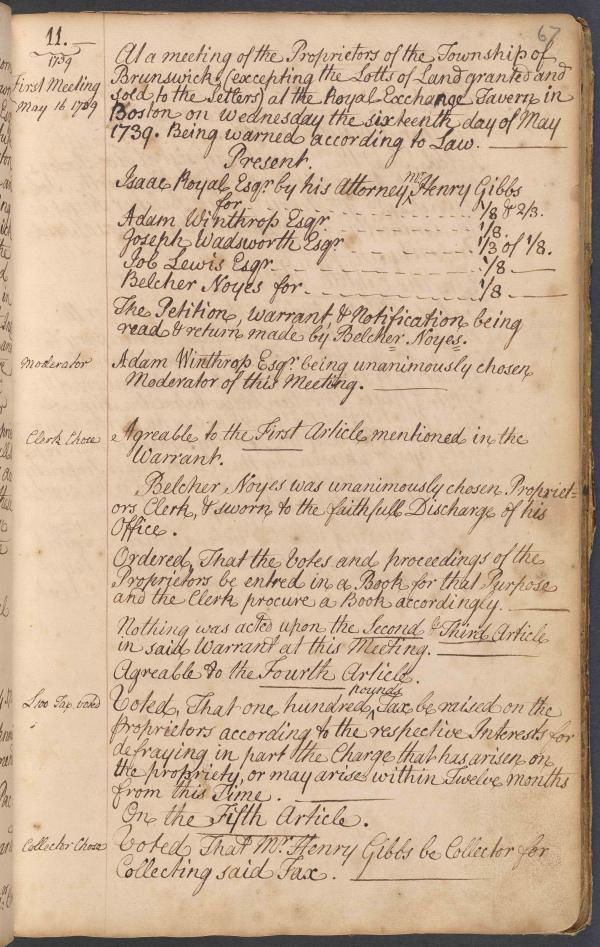 11.
67
1739
First Meeting
May 16 1739
At a meeting of the Proprietors of the Township of
Brunswick, (excepting the Lotts of Land granted and
sold to the Setlers) at the Royal Exchange Tavern in
Boston on Wednesday the sixteenth day of May
1739. Being warned according to Law.
Present.
Isaac Royal Esqr by his Attorney Mr Henry Gibbs
for 1/8 & 2/3.
Adam Winthrop Esqr 1/8.
Joseph Wadsworth Esqr 1/3 of 1/8.
Job Lewis Esqr 1/8
Belcher Noyes for 1/8
The Petition, warrant & Notification being
read & return made by Belcher Noyes.
Moderator
Adam Winthrop Esqr being unanimously chosen
Moderator of this Meeting.
Clerk Chose
Agreable to the First Article mentioned in the
Warrant.
Belcher Noyes was unanimously chosen Propriet=
ors Clerk, & sworn to the faithfull Discharge of his
Office.
Ordered, That the Votes and proceedings of the
Proprietors be entred in a Book for that Purpose
and the Clerk procure a Book accordingly.
Nothing was acted upon the Second & Third Article
in said Warrant at this Meeting.
Agreable to the Fourth Article.
£100 Tax voted
Voted, That one hundred pounds Tax be raised on the
proprietors according to the respective Interests for
defraying in part the Charge that has arisen on
the propriety, or may arise within Twelve months
from this Time.
On the Fifth Article.
Collector Chose
Voted That Mr Henry Gibbs be Collector for
Collecting said Tax.